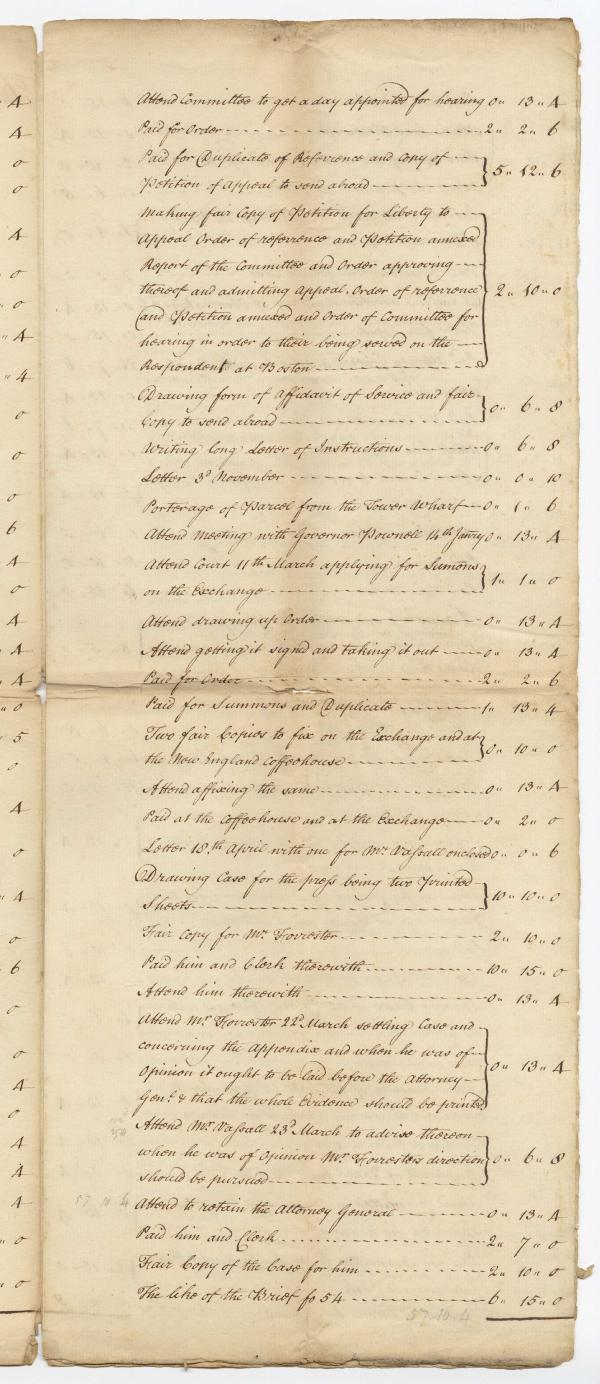 Attend Committee to get a day appointed for hearing 0 " 13 " 4
Paid for Order 2 " 2 " 6
Paid for Duplicate of Reference and Copy of
Petition of Appeal to send abroad 5 " 12 " 6
Making fair Copy of Petition for Liberty to
Appeal Order of referrence and Petition annexed
Report of the Committee and Order approving
thereof and admitting Appeal, Order of referrence 2 " 10 " 0
and Petition annexed and Order of Committee for
hearing in order to their being served on the
Respondent at Boston
Drawing form of Affidavit of Service and fair
Copy to send abroad 0 " 6 " 8
Writing long Letter of Instructions 0 " 6 " 8
Letter 3d November 0 " 0 " 10
Porterage of Parcel from the Tower Wharf 0 " 1 " 6
Attend Meeting with Governor Pownell 14th Janry 0 " 13 " 4
Attend Court 11th March applying for Sumons
on the Exchange 1 " 1 " 0
Attend drawing up Order 0 " 13 " 4
Attend getting it signed and taking it out 0 " 13 " 4
Paid for Order 2 " 2 " 6
Paid for Summons and Duplicate 1 " 13 " 4
Two fair Copies to fix on the Exchange and at
the New England Coffeehouse 0 " 10 " 0
Attend affixing the same 0 " 13 " 4
Paid at the Coffeehouse and at the Exchange 0 " 2 " 0
Letter 18th April with one for Mr Vassall enclosed 0 " 0 " 6
Drawing Case for the press being two Printed
Sheets 10 " 10 " 0
Fair Copy for Mr Forrester 2 " 10 " 0
Paid him and Clerk therewith 10 " 15 " 0
Attend him therewith 0 " 13 " 4
Attend Mr Forrester 22d March settling Case and
concerning the Appendix and when he was of
Opinion it ought to be laid before the Attorney 0 " 13 " 4
Genl & that the whole Evidence should be printed
Attend Mr Vassall 23d March to advise thereon
when he was of Opinion Mr Forresters direction 0 " 6 " 8
should be pursued
Attend to retain the Attorney General 0 " 13 " 4
Paid him and Clerk 2 " 7 " 0
Fair Copy of the Case for him 2 " 10 " 0
The like of the Brief fo 54 6 " 15 " 0
57 10 4
57 - 10 - 4